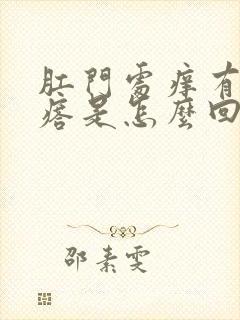 肛門處癢有
痞是怎麼回
邵素雯